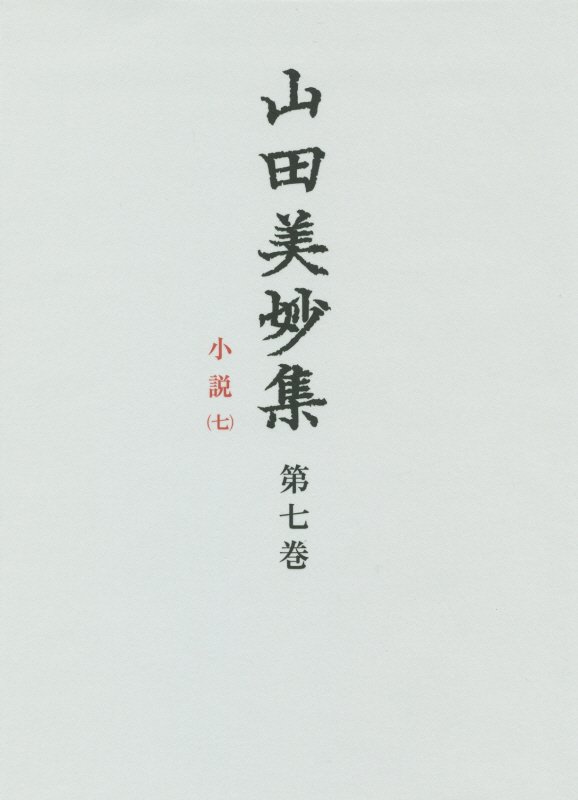 山田美妙集
第七巻
小説(七)